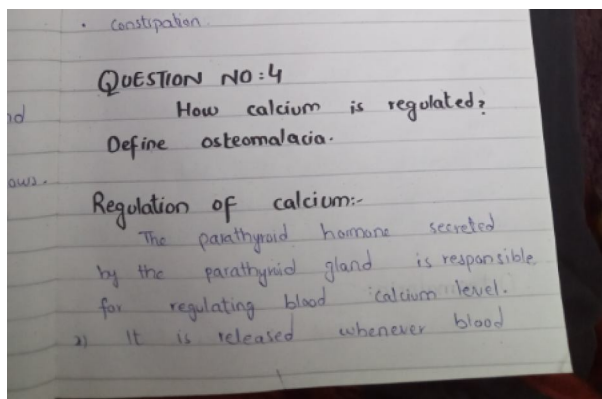 • constipation.
QUESTION NO:4
How calcium is regulated?
Define osteomalacia.
Regulation of calcium:-
The parathyroid hormone secreted
by the parathyroid gland is responsible
for regulating blood calcium level.
2) It is released whenever blood